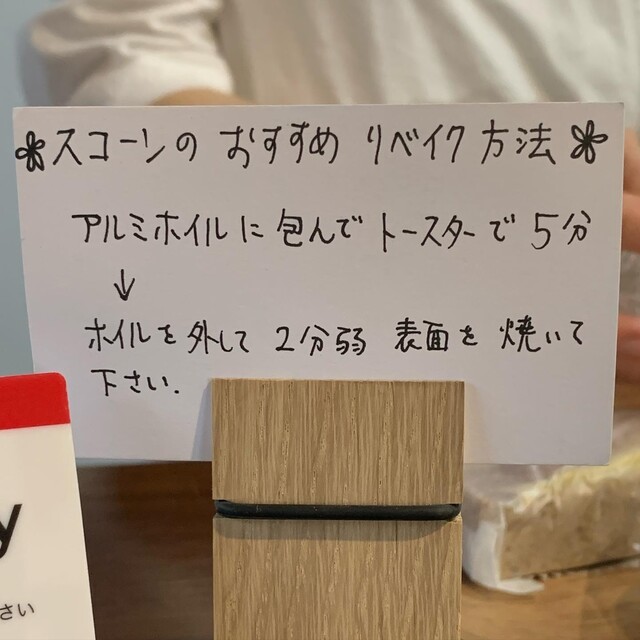 スコーンの おすすめ リベイク方法
アルミホイルに 包んで トースターで 5分
↓
ホイルを 外して 2分弱 表面を 焼いて
下さい.
y
さい